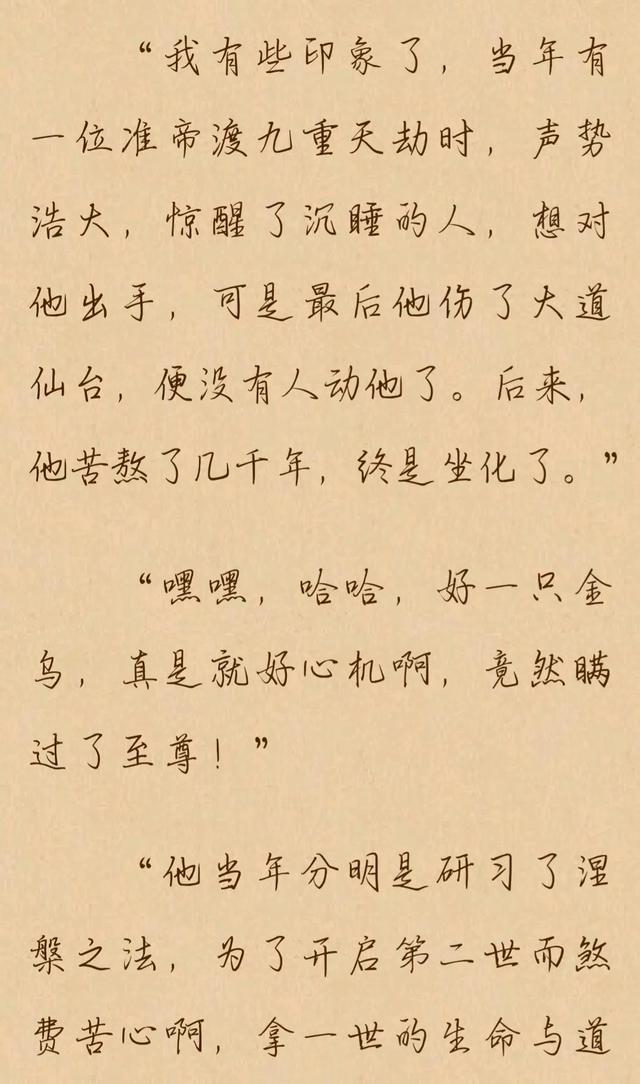 “我有些印象了，当年有
一位准帝渡九重天劫时，声势
浩大，惊醒了沉睡的人，想对
他出手，可是最后他伤了大道
仙台，便没有人动他了。后来，
他苦熬了几千年，终是坐化了。”
“嘿嘿，哈哈，好一只金
乌，真是就好心机啊，竟然瞒
过了至尊！”
“他当年分明是研习了涅
槃之法，为了开启第二世而煞
费苦心啊，拿一世的生命与道